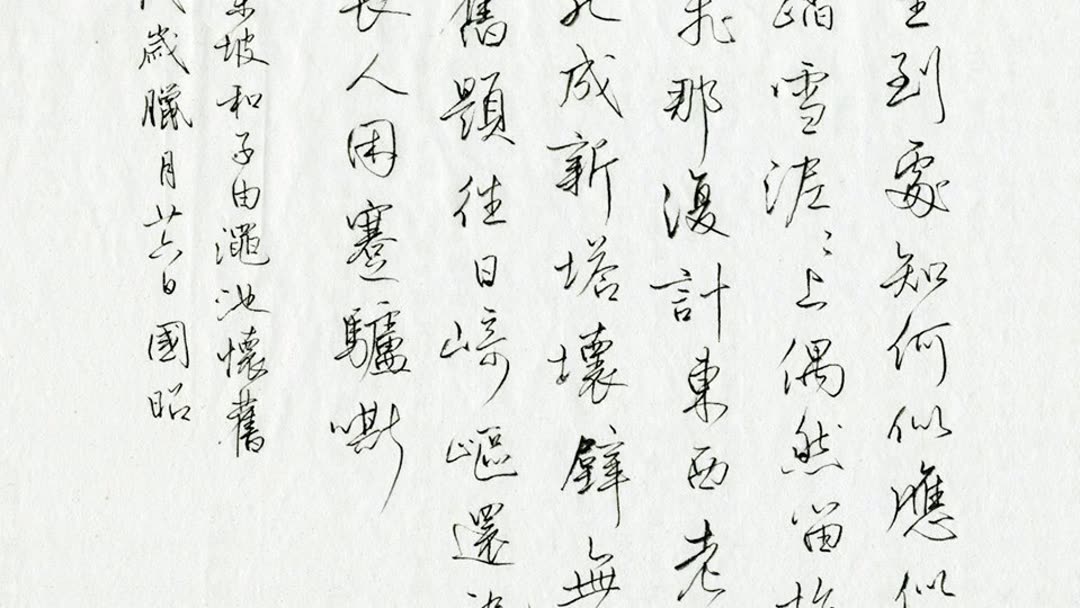 生到處知何似應似
踏雪泥〻上偶然留指
飛那復計東西老
成新塔壞壁無
舊題往日崎嶇還
長人困蹇驢嘶
東坡和子由澠池懷舊
歲臘月廿六日國昭